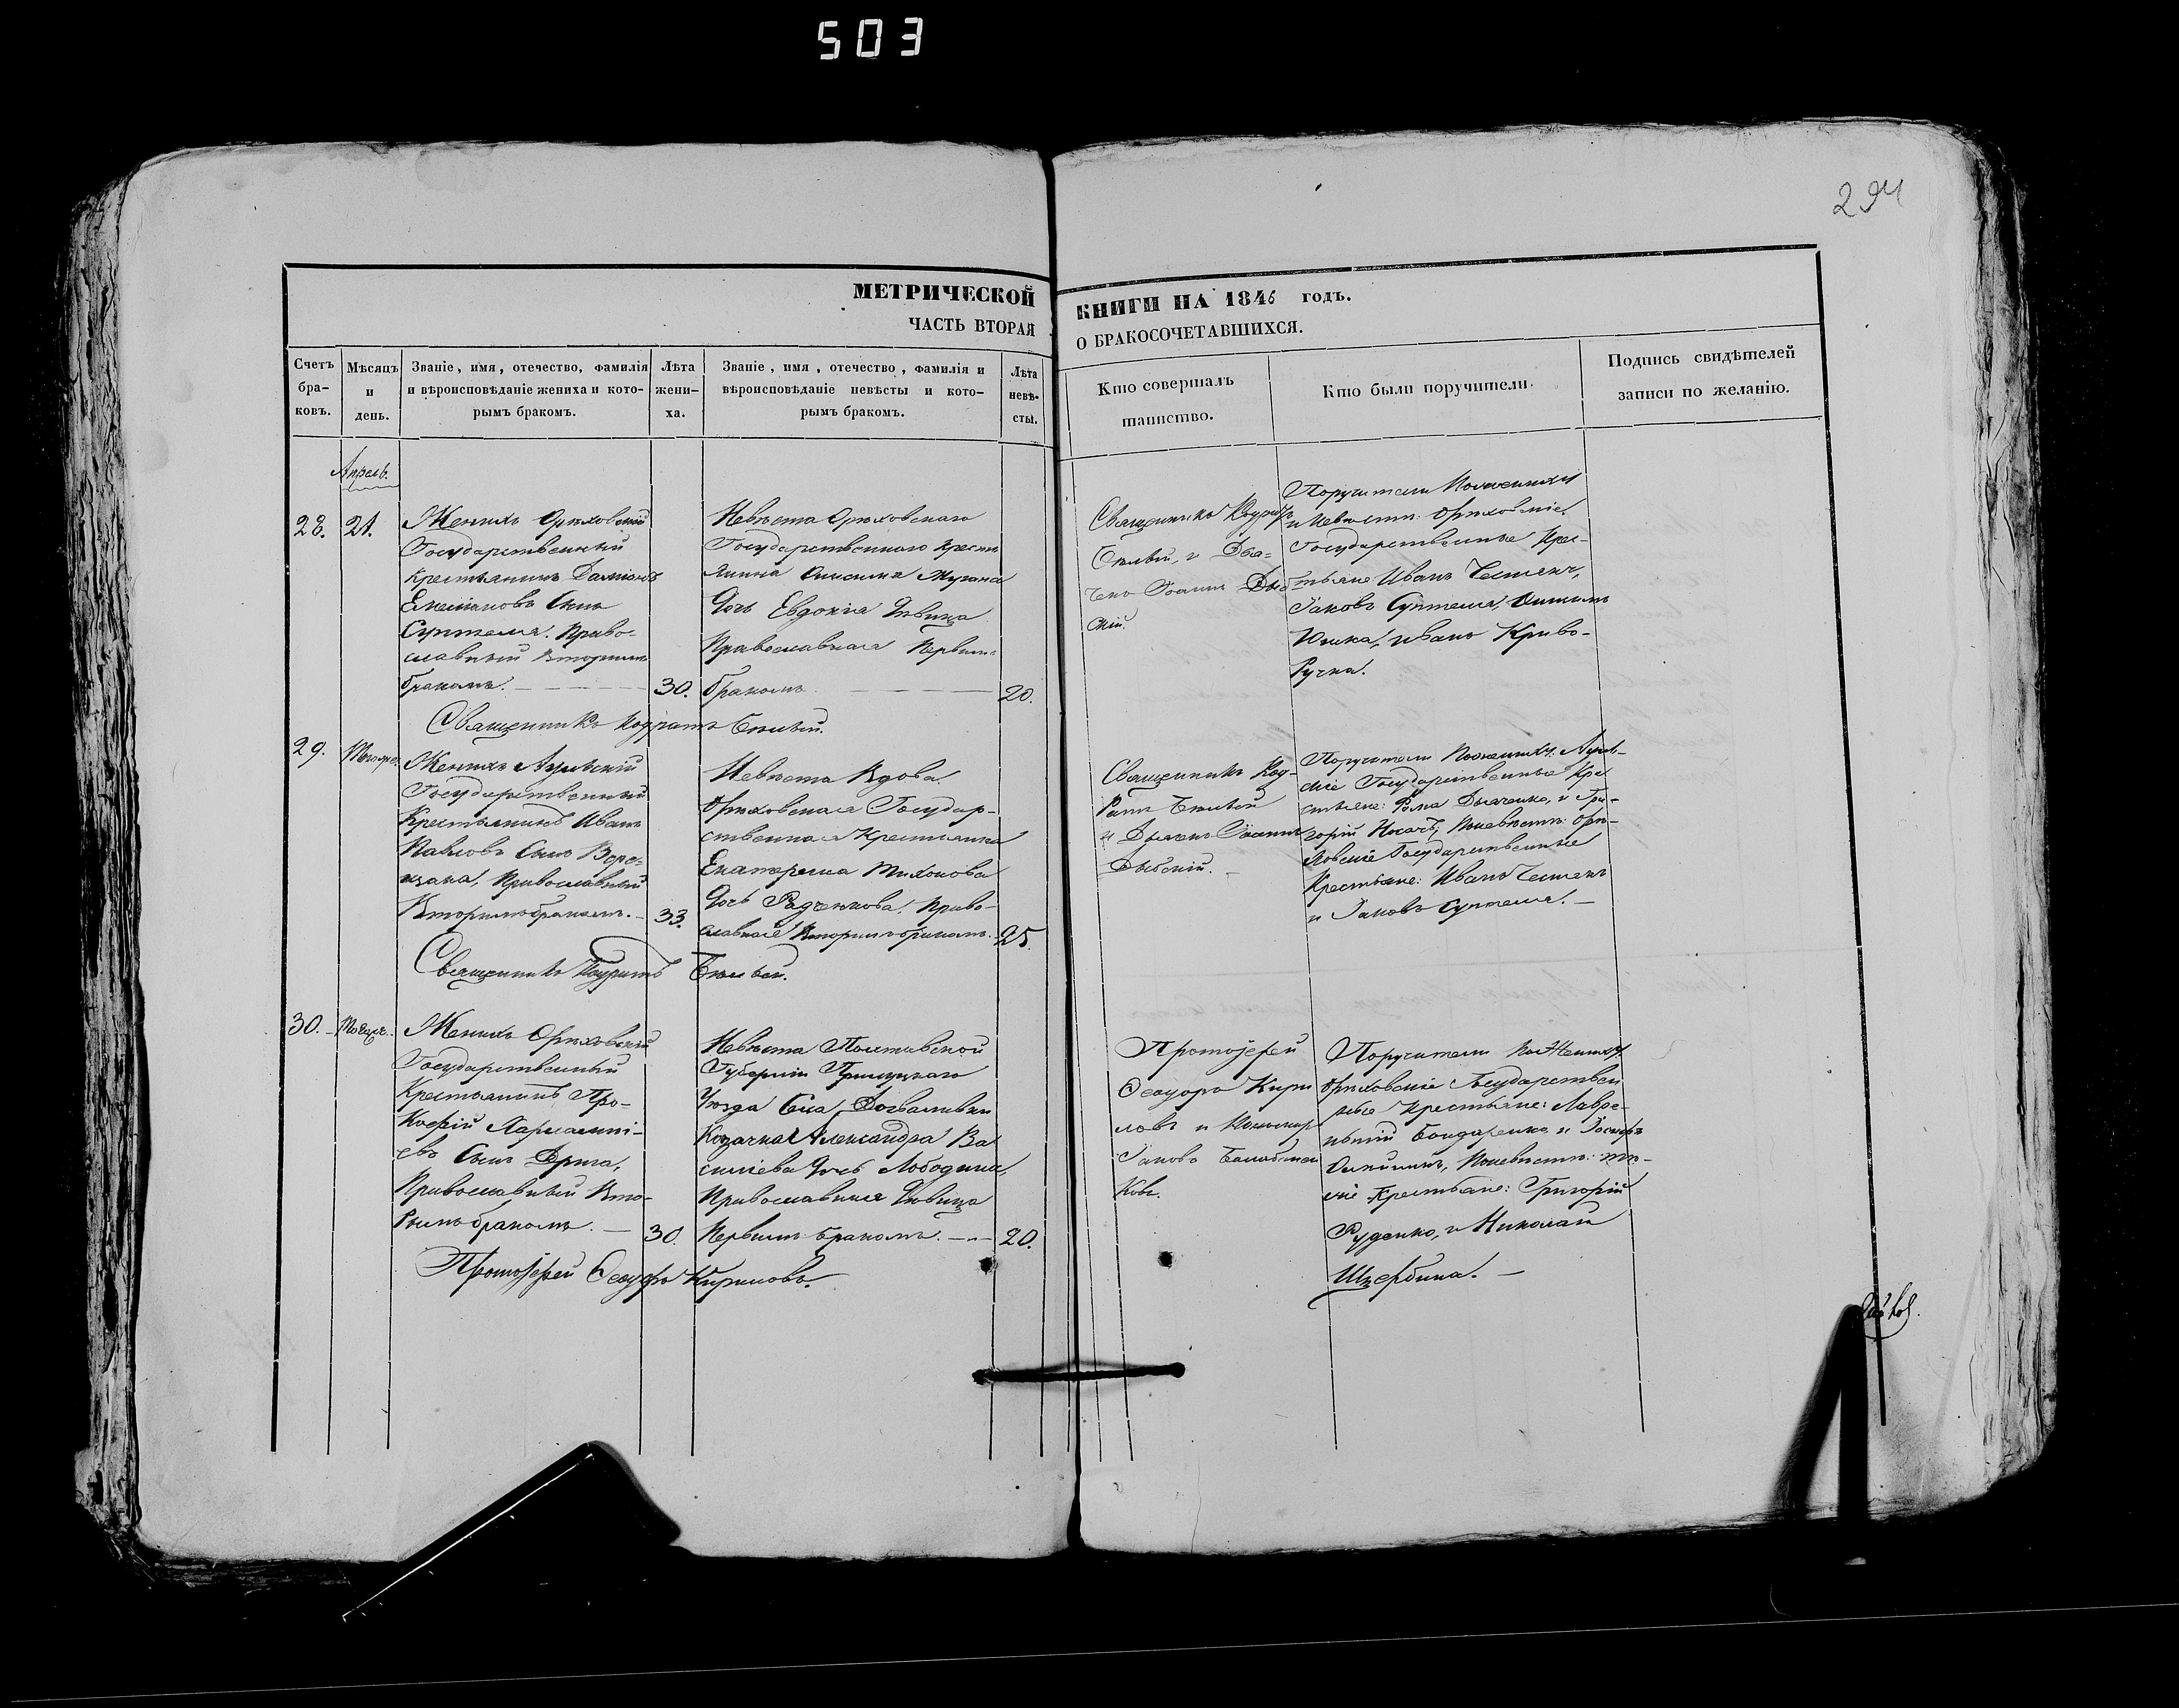 503
294
МЕТРИЧЕСКОЙ
ЧАСТЬ ВТОРАЯ
КНИГИ НА 1846 годъ.
О БРАКОСОЧЕТАВШИХСЯ.
Счетъ бра-ковъ.
Мѣсяцъ и день.
Званіе, имя, отечество, фамилія
и вѣроисповѣданіе жениха и кото-
рымъ бракомъ.
Лѣта жени-ха.
Званіе, имя, отечество, фамилія и
вѣроисповѣданіе невѣсты и кото-
рымъ бракомъ.
Лѣта невѣ-сты.
Кто совершалъ
таинство.
Кто были поручители.
Подпись свидѣтелей
записи по желанію.
Апрель.
28. 21.
Женихъ Орѣховскій
Государственный
Крестьянинъ Даміанъ
Емеліановъ Сынъ
Суптеля. Право-
славный Вторымъ
бракомъ. 30.
Невѣста Орѣховскаго
Государственнаго Крестья
янина Онисима Мугана
Дочь Евдокія Дѣвица
Православная Первымъ
бракомъ 20.
Священникъ Кодратъ
Бѣлый, и Дья-
чекъ Іоаннъ
скій.
Поручители По женихѣ
и Невѣстѣ: Орѣховскіе
Государственные Крес-
тьяне Иванъ
Іаковъ Суптеля,
Юшка, Иванъ Криво-
Ручка.
Священникъ Кодратъ Бѣлый.
29.
Женихъ
Государственный
Крестьянинъ Иванъ
Павловъ Сынъ Вере-
щака, Православный
Вторымъ бракомъ. 33.
Невѣста Вдова
Орѣховская Государ-
ственная Крестьянка
Екатерина Тихонова
Дочь Радченкова. Право-
славная Вторымъ бракомъ. 25.
Священникъ Код-
ратъ Бѣлый
и Дьячекъ Іоаннъ
Поручители По женихѣ:
скіе Государственные Кре
стьяне: Фома Дьяченко, и Гри-
горій Носачъ, По невѣстѣ: Орѣ-
ховскіе Государственные
Крестьяне: Иванъ
и Іаковъ Суптеля.
Священникъ Кодратъ Бѣлый.
30. Тогоже.
Женихъ Орѣховскій
Государственный
Крестьянинъ Про-
кофій
евъ Сынъ Дрига,
Православный Вто-
рымъ бракомъ. 30.
Невѣста Полтавской
Губерніи Прилуцкаго
Уѣзда Села
Козачка Александра Ва
силіева Дочь Лободина,
Православная Дѣвица
Первымъ бракомъ. 20.
Протоіерей
Ѳеодоръ Кири
ловъ и Пономарь
Іаковъ
ковъ.
Поручители По Женихѣ
Орѣховскіе Государствен
ные Крестьяне: Лавре-
нтій Бондаренко, и Іосифъ
По невѣстѣ: тѣ-
же Крестьяне: Григорій
Руденко, и Николай
Щербина.
Протоіерей Ѳеодоръ Кириловъ.